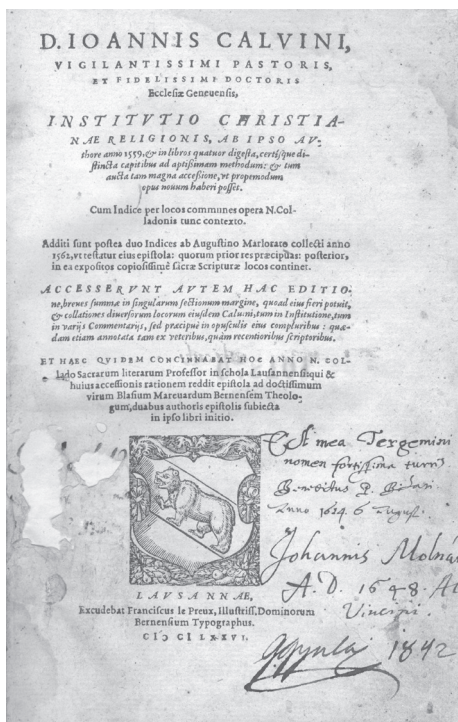 D. IOANNIS CALVINI,
VIGILANTISSIMI PASTORIS,
ET FIDELISSIMI DOCTORIS
Ecclesiæ Geneuensis,
INSTITVTIO CHRISTIA-
NAE RELIGIONIS, AB IPSO AV-
thore anno 1559, & in libros quatuor digesta, certisque di-
stincta capitibus ad aptissimam methodum: & tum
aucta tam magna accessione, vt propemodum
opus nouum haberi possit.
Cum Indice per locos communes opera N. Col-
ladonis tunc contexto.
Additi sunt postea duo Indices ab Augustino Marlorato collecti anno
1562, vt testatur eius epistola: quorum prior res præcipuas: posterior,
in ea expositos copiosissimè sacræ Scripturæ locos continet.
ACCESSERVNT AVTEM HAC EDITIO-
ne, breues summæ in singularum sectionum margine, quoad eius fieri potuit,
& collationes diuersorum locorum eiusdem Caluini, tum in Institutione, tum
in varijs Commentarijs, sed præcipuè in opusculis eius compluribus: quæ-
dam etiam annotata tam ex veteribus, quàm recentioribus scriptoribus.
ET HAEC QVIDEM CONCINNABAT HOC ANNO N. COL-
lado Sacrarum literarum Professor in schola Lausannensi: qui &
huius accessionis rationem reddit epistola ad doctissimum
virum Blasium Marcuardum Bernensem Theolo-
gum, duabus authoris epistolis subiecta
in ipso libri initio.
Est mea Tergemini
nomen fortissima turris
Anno 1624. 6
Johannis Molnár
A. D. 1648.
LAVSANNAE,
Excudebat Franciscus le Preux, Illustriss. Dominorum
Bernensium Typographus.
CIƆ IƆ LXXVI.
1842